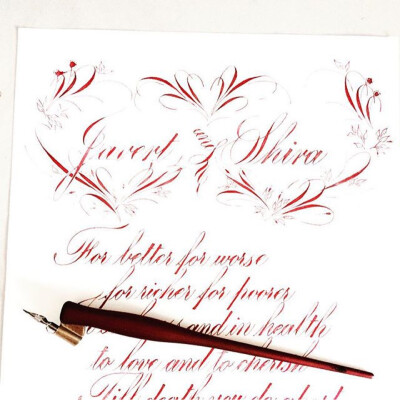 Javert & Shira
For better for worse
for richer for poorer
and in health
to love and to cherish
Till death you do apart